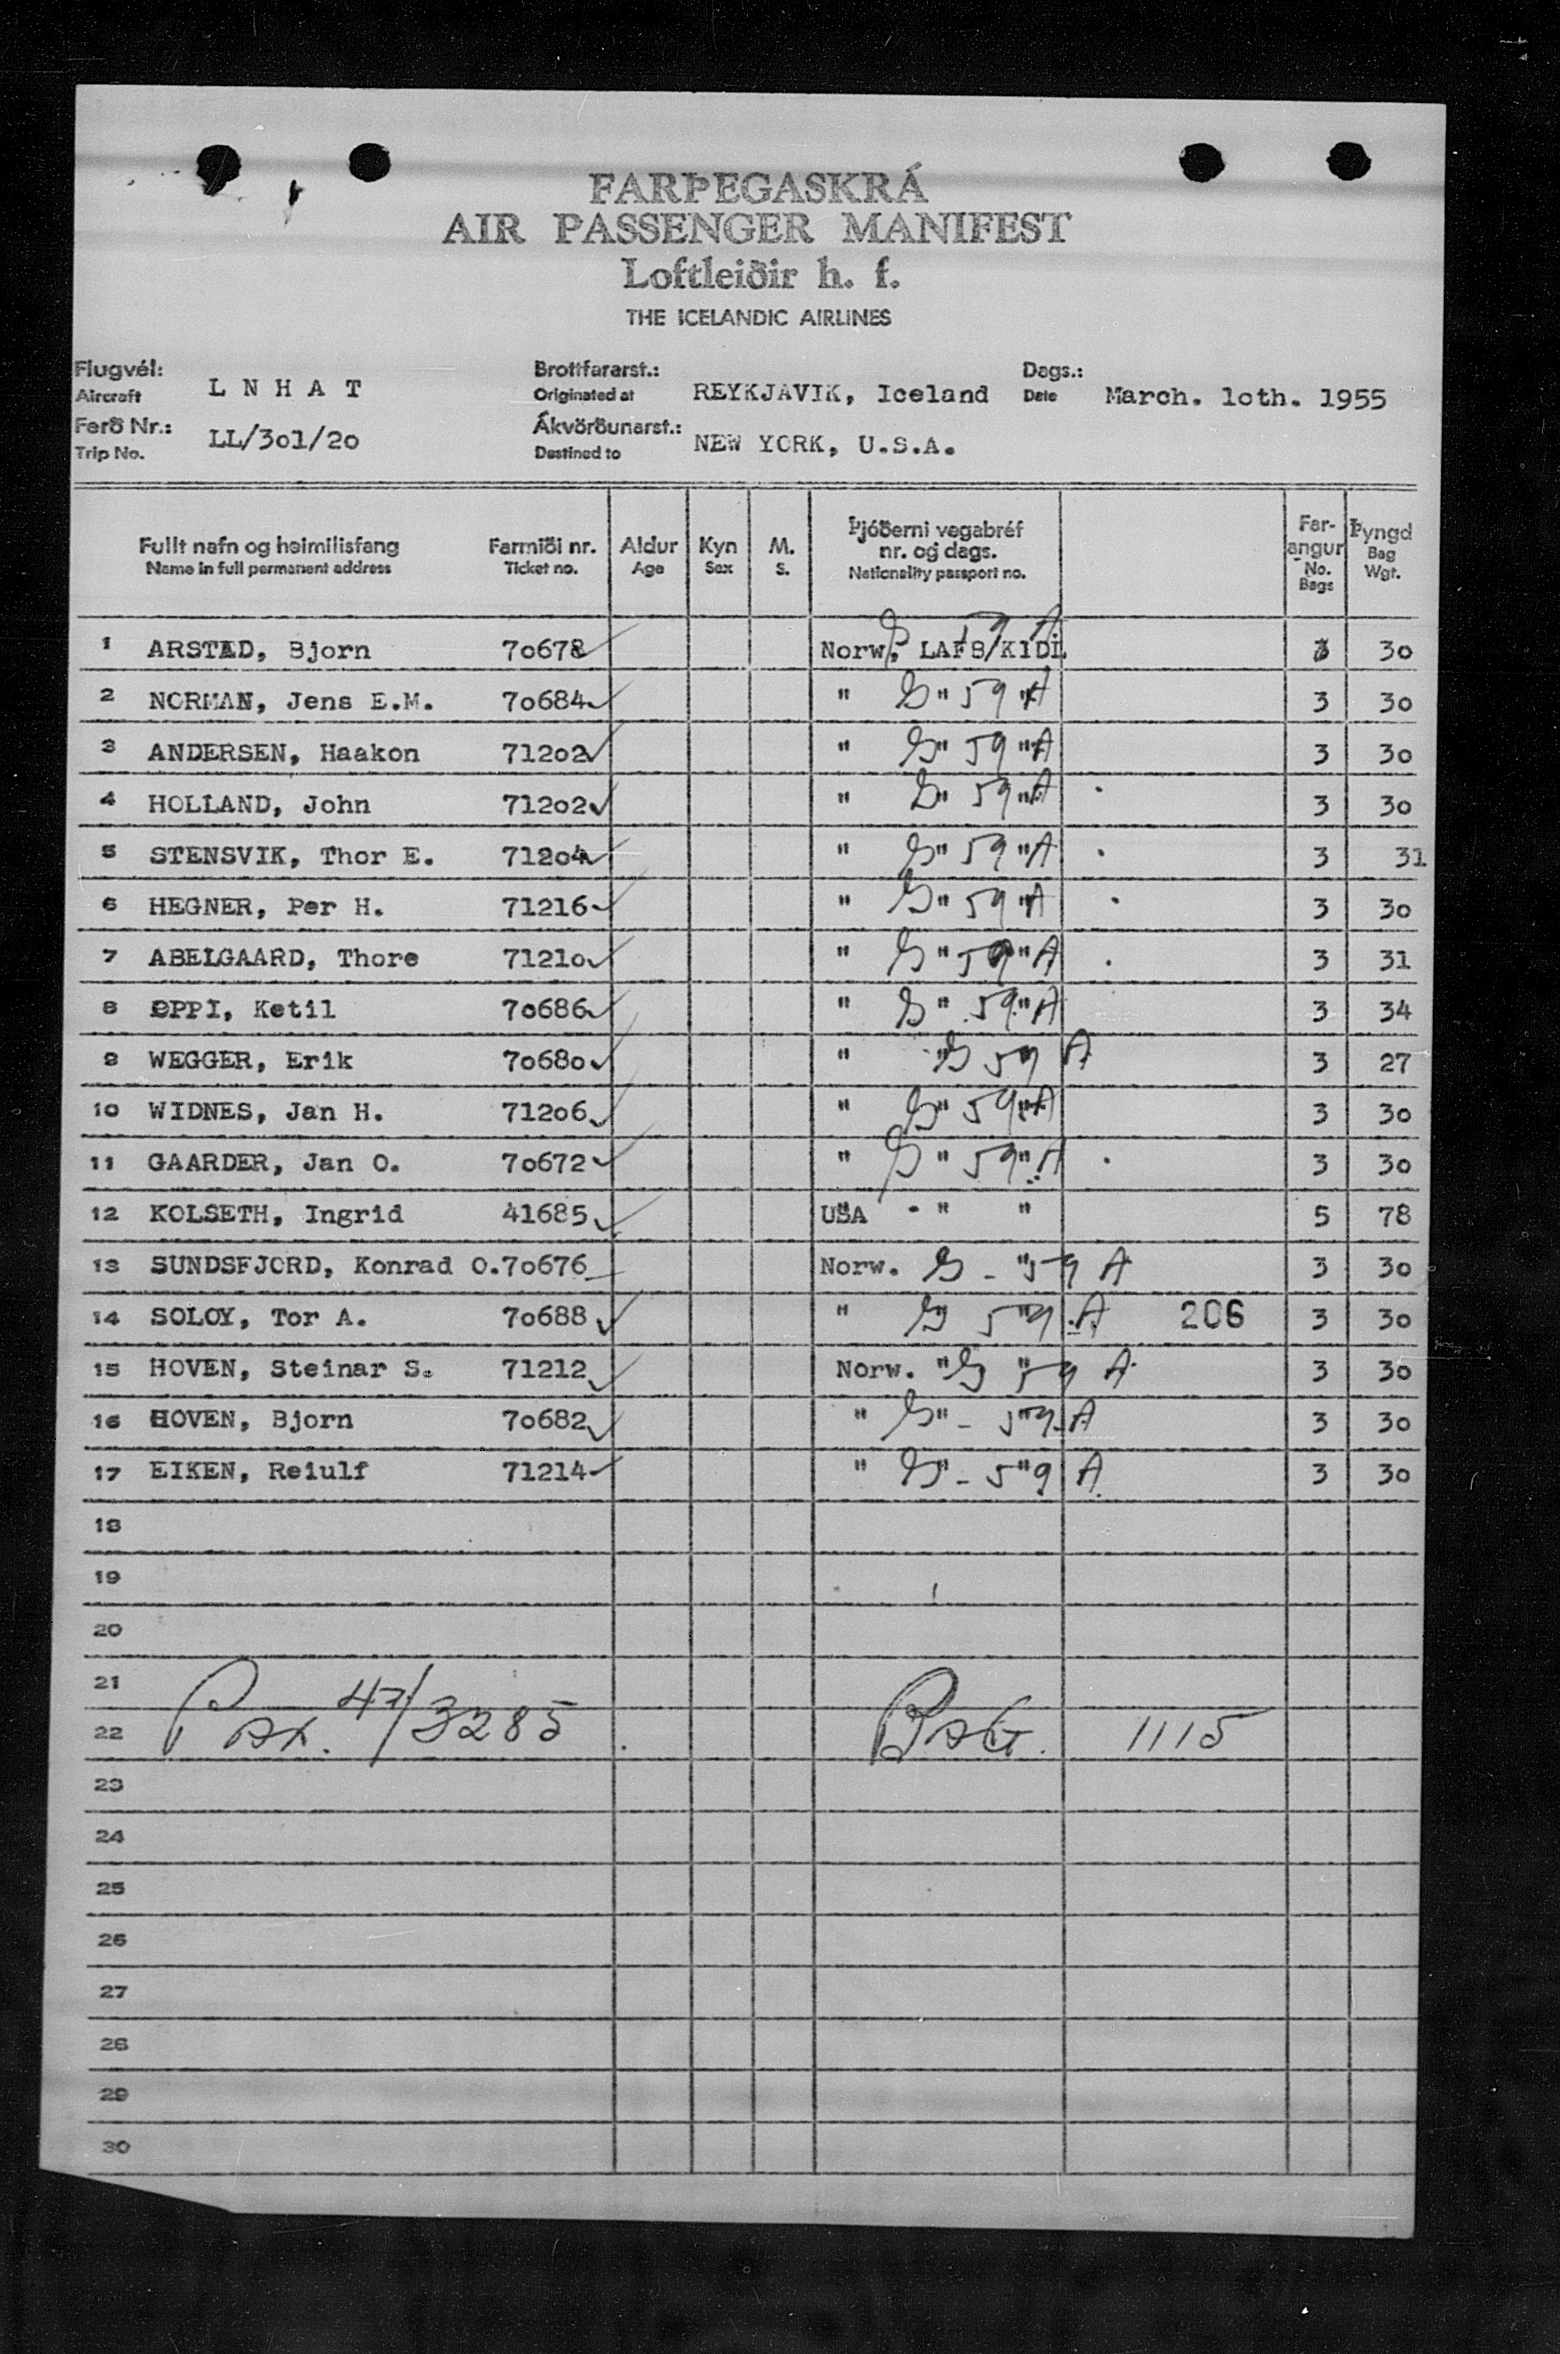 FARÞEGASKRÁ
AIR PASSENGER MANIFEST
Loftleiðir h. f.
THE ICELANDIC AIRLINES
Flugvél: Aircraft L N H A T Brottfararst.: Originated at REYKJAVIK, Iceland Dags.: Date March. 1oth. 1955
Ferð Nr.: Trip No. LL/3o1/2o Ákvörðunarst.: Destined to NEW YORK, U.S.A.
Fullt nafn og heimilisfang Farmiði nr. Aldur Kyn M. Þjóðerni vegabréf nr. og dags. Farangur Þyngd
Name in full permanent address Ticket no. Age Sex S. Nationality passport no. No. Bags Bag Wgt.
1 ARSTAD, Bjorn 7o678 Norw. LAFB/KIDL G 59 A 3 3o
2 NORMAN, Jens E.M. 7o684 " G " 59 " A 3 3o
3 ANDERSEN, Haakon 712o2 " G " 59 " A 3 3o
4 HOLLAND, John 712o2 " G " 59 " A 3 3o
5 STENSVIK, Thor E. 712o4 " G " 59 " A 3 31
6 HEGNER, Per H. 71216 " G " 59 " A 3 3o
7 ABELGAARD, Thore 7121o " G " 59 " A 3 31
8 OPPI, Ketil 7o686 " G " 59 " A 3 34
9 WEGGER, Erik 7o68o " " G 59 A 3 27
10 WIDNES, Jan H. 712o6 " G " 59 " A 3 3o
11 GAARDER, Jan O. 7o672 " G " 59 " A 3 3o
12 KOLSETH, Ingrid 41685 USA " " 5 78
13 SUNDSFJORD, Konrad O. 7o676 Norw. G - " 59 A 3 3o
14 SOLOY, Tor A. 7o688 " G 5 " 9 A 206 3 3o
15 HOVEN, Steinar S. 71212 Norw. " G " 59 A 3 3o
16 HOVEN, Bjorn 7o682 " G " - 5 " 9 A 3 3o
17 EIKEN, Reiulf 71214 " G " - 5 " 9 A 3 3o
18
19
20
21
22 Pax. 47/3285 BAG. 1115
23
24
25
26
27
28
29
30